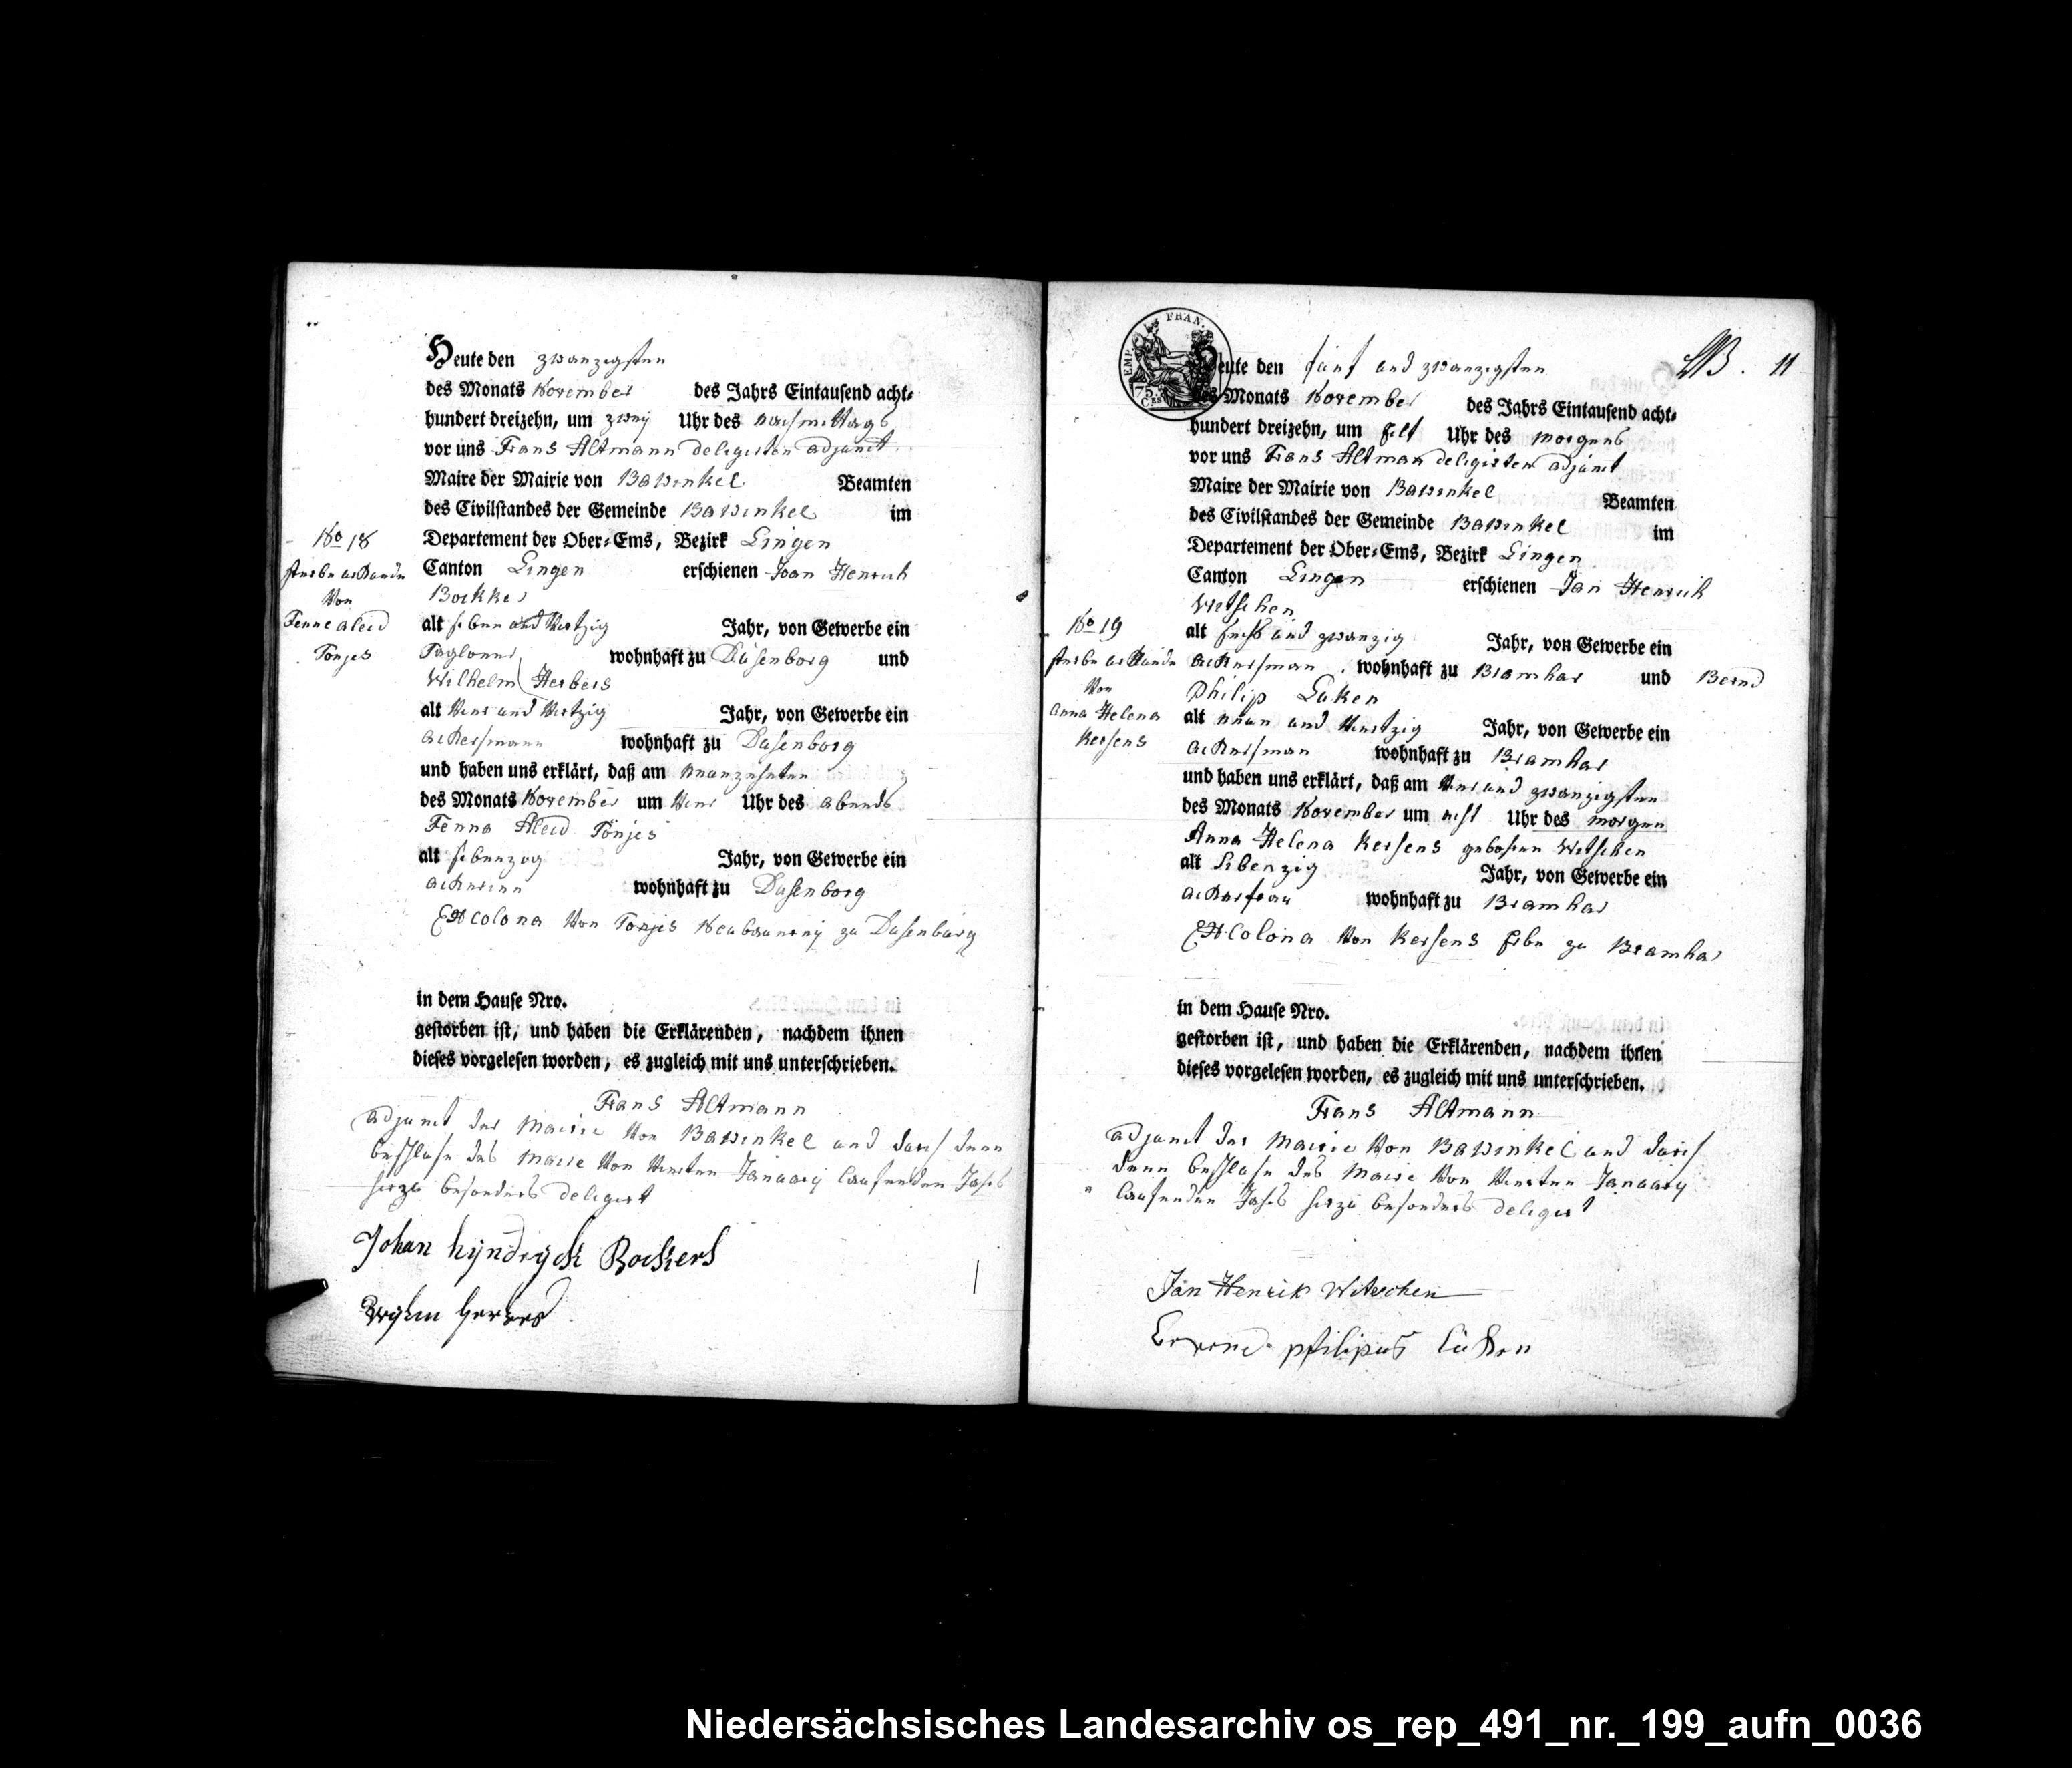 Heute den zwanzigsten
des Monats November des Jahrs Eintausend acht-
hundert dreizehn, um zwey Uhr des nachmittags
vor uns Frans Altmann delegirten adjunct
Maire der Mairie von Bawinkel Beamten
des Civilstandes der Gemeinde Bawinkel im
Departement der Ober-Ems, Bezirk Lingen
Canton Lingen erschienen Joan Henrich
Bockker
alt sieben und virtzig Jahr, von Gewerbe ein
Taglöner wohnhaft zu Dusenborg und
Wilhelm Herbers
alt vier und virtzig Jahr, von Gewerbe ein
ackersmann wohnhaft zu Dusenborg
und haben uns erklärt, daß am neunzehnten
des Monats November um vier Uhr des abends
Fenna Aleid Tönjes
alt siebenzig Jahr, von Gewerbe ein
wohnhaft zu Dusenborg
Excolona von Tonjes Neubauerey zu Dusenburg
in dem Hause Nro.
gestorben ist, und haben die Erklärenden, nachdem ihnen
dieses vorgelesen worden, es zugleich mit uns unterschrieben.
Frans Altmann
adjunct der Mairie von Bawinkel und durch denn
beschluse des Maire von vierten January laufenden Jahrs
hierzu besonders delegirt
Johan hyndryck Bockers
No 18
sterbe urkunde
von
Fenne aleid
Tonjes
EMP. FRAN.
75
11
Heute den fünf und zwanzigsten
des Monats November des Jahrs Eintausend acht-
hundert dreizehn, um Elf Uhr des morgens
vor uns Frans Altman delegirten adjunct
Maire der Mairie von Bawinkel Beamten
des Civilstandes der Gemeinde Bawinkel im
Departement der Ober-Ems, Bezirk Lingen
Canton Lingen erschienen Jan Henrich
Wetschen
alt sechs und zwanzig Jahr, von Gewerbe ein
ackersman wohnhaft zu Bramhar und Bernd
Philip Luken
alt neun und viertzig Jahr, von Gewerbe ein
ackersman wohnhaft zu Bramhar
und haben uns erklärt, daß am vier und zwanzigsten
des Monats November um acht Uhr des morgen
Anna Helena Kersens gebohren Wetschen
alt Siebenzig Jahr, von Gewerbe ein
ackersfrau wohnhaft zu Bramhar
Excolona von Kersens Erbe zu Bramhar
in dem Hause Nro.
gestorben ist, und haben die Erklärenden, nachdem ihnen
dieses vorgelesen worden, es zugleich mit uns unterschrieben.
Frans Altmann
adjunct der Mairie von Bawinkel und durch
denn beschluse des Maire von vierten January
laufenden Jahrs hierzu besonders delegirt
Jan Henrik Witschen
philipus Lüken
No 19
sterbe urkunde
von
Anna Helena
Kersens
Niedersächsisches Landesarchiv os_rep_491_nr._199_aufn_0036